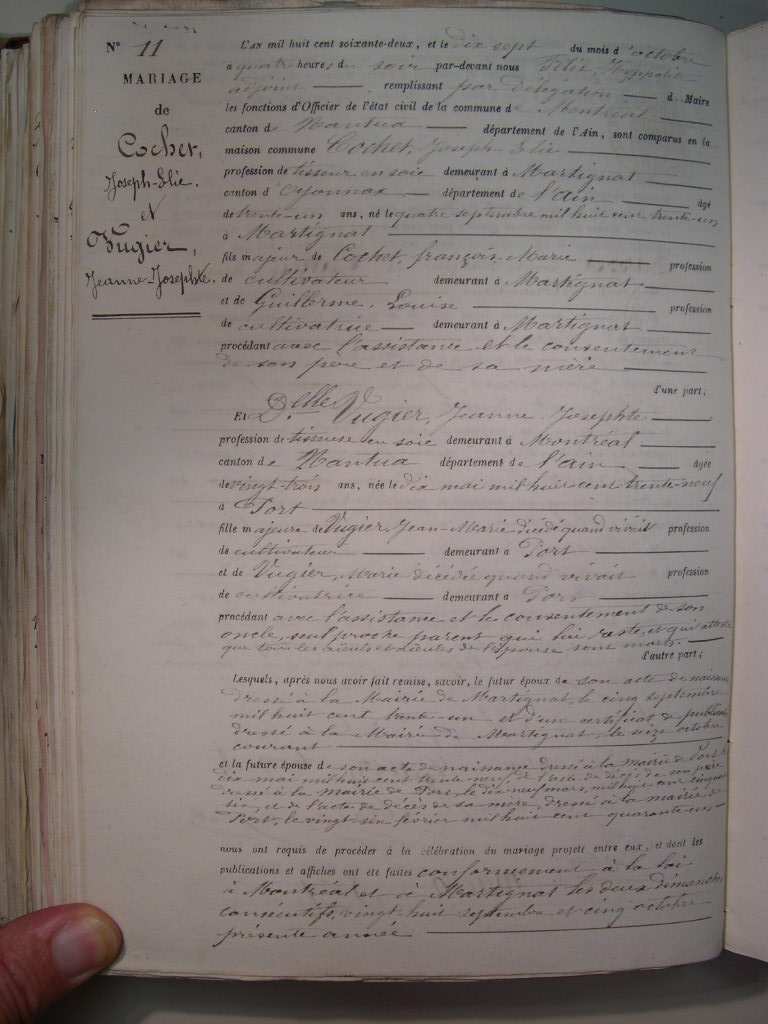 N° 11
MARIAGE
de
Cochet,
Joseph-Elie.
et
Vugier,
Jeanne-Josephte.
L'AN mil huit cent soixante-deux, et le dix sept du mois d'octobre
a quatre heures du soir par-devant nous Félix, Hyppolite
adjoint remplissant par délégation d Maire
les fonctions d'Officier de l'état civil de la commune de Montréal
canton de Nantua département de l'Ain, sont comparus en la
maison commune Cochet, Joseph Elie
profession de tisseur en soie demeurant à Martignat
canton d'Oyonnax département de l'ain âgé
de trente-un ans, né le quatre septembre mil huit cent trente-un
à Martignat
fils majeur de Cochet, françois-Marie profession
de cultivateur demeurant à Martignat
et de Guillerme, Louise profession
de cultivatrice demeurant à Martignat
procédant avec l'assistance et le consentement
de son père et de sa mère
d'une part;
Et D.elle Vugier, Jeanne Josephte
profession de tisseuse en soie demeurant à Montréal
canton de Nantua département de l'ain âgée
de vingt-trois ans, née le dix mai mil huit cent trente-neuf
à Port
fille majeure de Vugier, Jean-Marie décédé quand vivait profession
de cultivateur demeurant à Port
et de Vugier, Marie décédée quand vivait profession
de cultivatrice demeurant à Port
procédant avec l'assistance et le consentement de son
oncle, seul proche parent qui lui reste, et qui atteste
que tous les aïeuls et aïeules de l'épouse sont morts.
d'autre part;
Lesquels, après nous avoir fait remise, savoir, le futur époux de son acte de naissance
dressé à la Mairie de Martignat, le cinq septembre
mil huit cent trente-un et d'un certificat de publication
dressé à la Mairie de Martignat, le seize octobre
courant
et la future épouse de son acte de naissance dressé à la mairie de Port, le
dix mai mil huit cent trente neuf, de l'acte de décès de son père
dressé à la mairie de Port, le dix neuf mars, mil huit cent cinquante
six, et de l'acte de décès de sa mère, dressé à la mairie de
Port, le vingt-six février mil huit cent quarante-un
nous ont requis de procéder à la célébration du mariage projeté entre eux, et dont les
publications et affiches ont été faites conformément à la loi
à Montréal et à Martignat les deux dimanches
consécutifs, vingt-huit septembre et cinq octobre
présente année